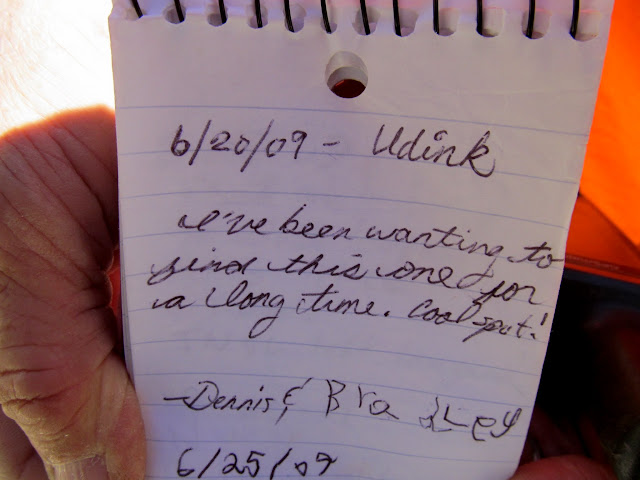 6/20/09 - Udink
I've been wanting to
find this one for
a long time. Cool spot!
- Dennis & Bradley
6/25/09